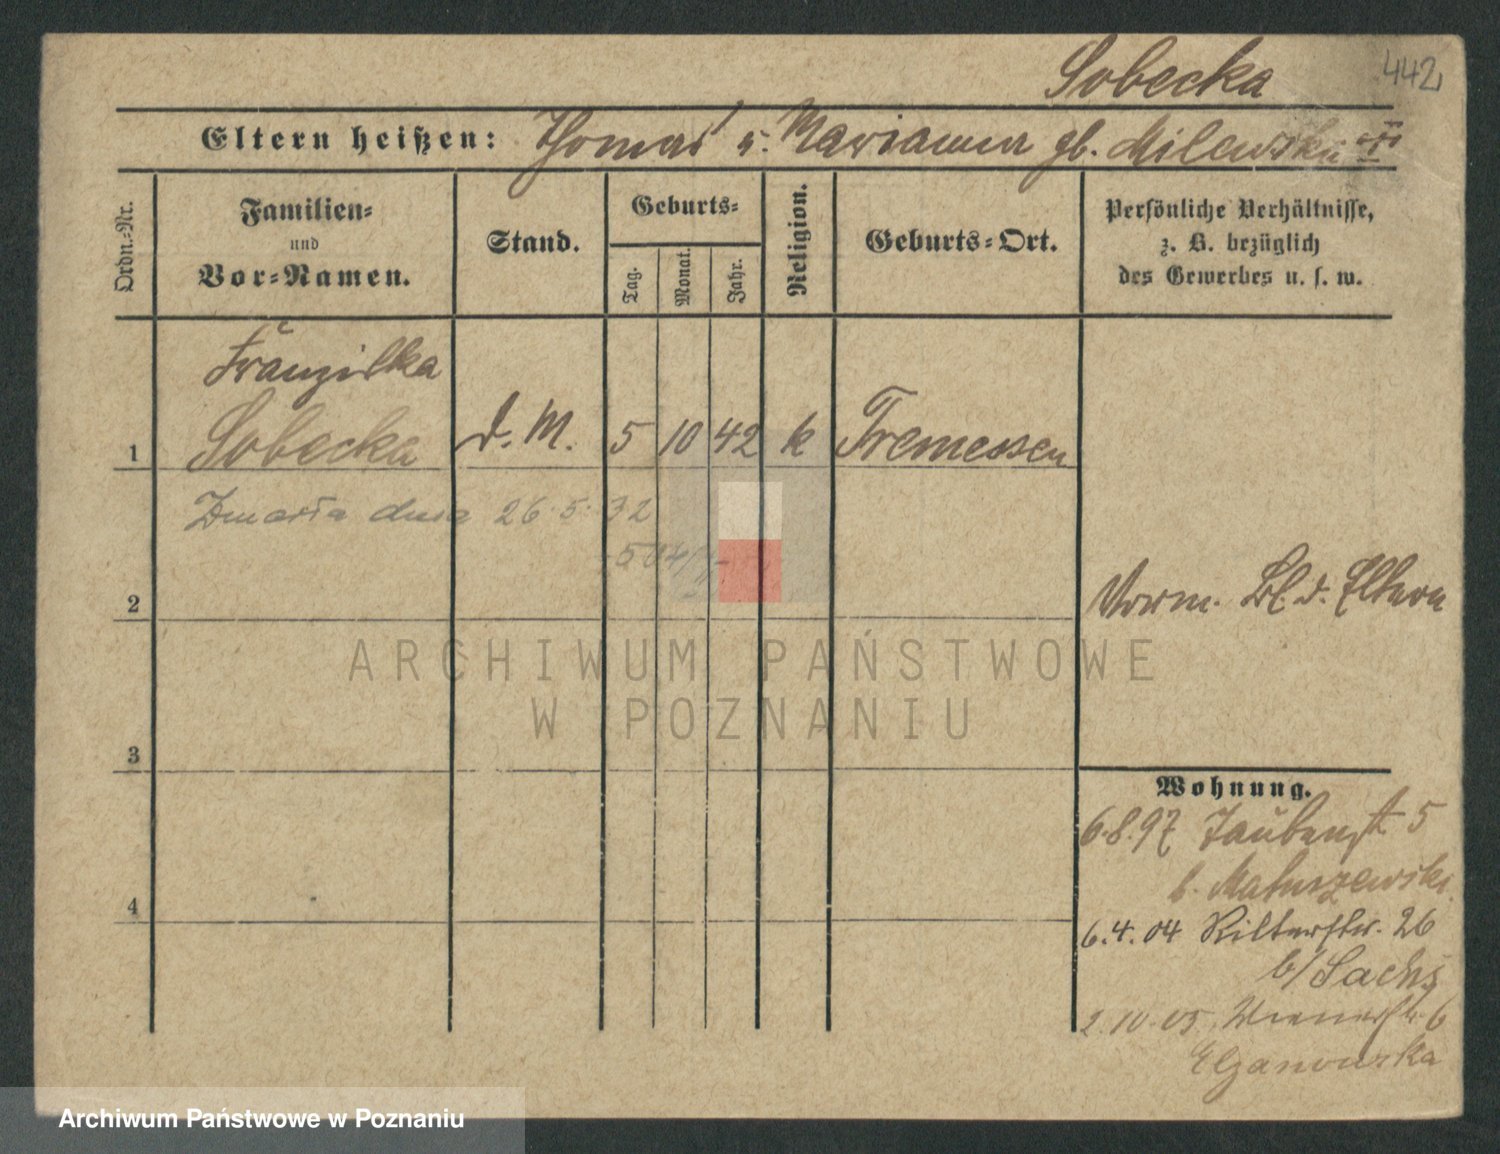 Sobecka 442
Eltern heißen: Thomas u. Marianna gb. Milewska
Ordn.-Nr.
Familien-
und
Vor-Namen.
Stand.
Geburts-
Tag.
Monat.
Jahr.
Religion.
Geburts-Ort.
Persönliche Verhältnisse,
z. B. bezüglich
des Gewerbes u. s. w.
Franziska
1 Sobecka d. M. 5 10 42 k Tremessen
Zmarła dnia 26.5.32
504/
2
Verm. Bl. d. Eltern
ARCHIWUM PAŃSTWOWE
W POZNANIU
3
Wohnung.
6.8.97 Taubenstr 5
b. Matuszewski
4
6.4.04 Ritterstr. 26
b/ Sachs
2.10.05 Wienerstr. 6
Elzanowska
Archiwum Państwowe w Poznaniu